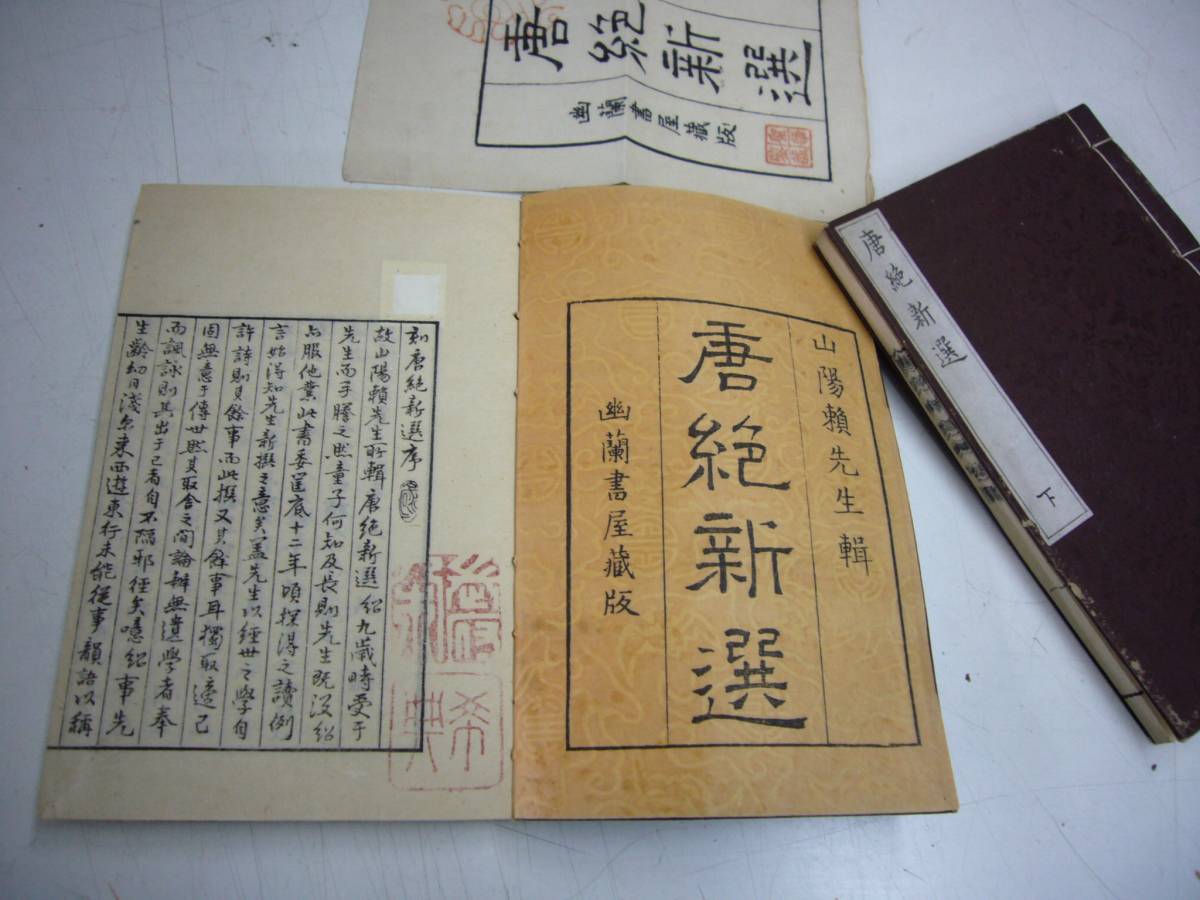 唐絶新選
幽蘭書屋藏版
山陽賴先生輯
唐絶新選
幽蘭書屋藏版
刻唐絶新選序
故山陽賴先生所輯唐絶新選紹九歲時受于
先生而手謄之然童子何知及長則先生既沒紹
亦服他業此書委筐底十二年頃探得之讀例
言始得知先生新撰之意矣蓋先生以經世之學自
許詩則其餘事而此撰又其餘事耳獨取適己
固無意于傳世然其取舍之間論辨無遺學者奉
而諷詠則其出于己者自不陷邪徑矣噫紹事先
生齡幼日淺尓来西遊東行未能從事韻語以稱
唐絶新選 下